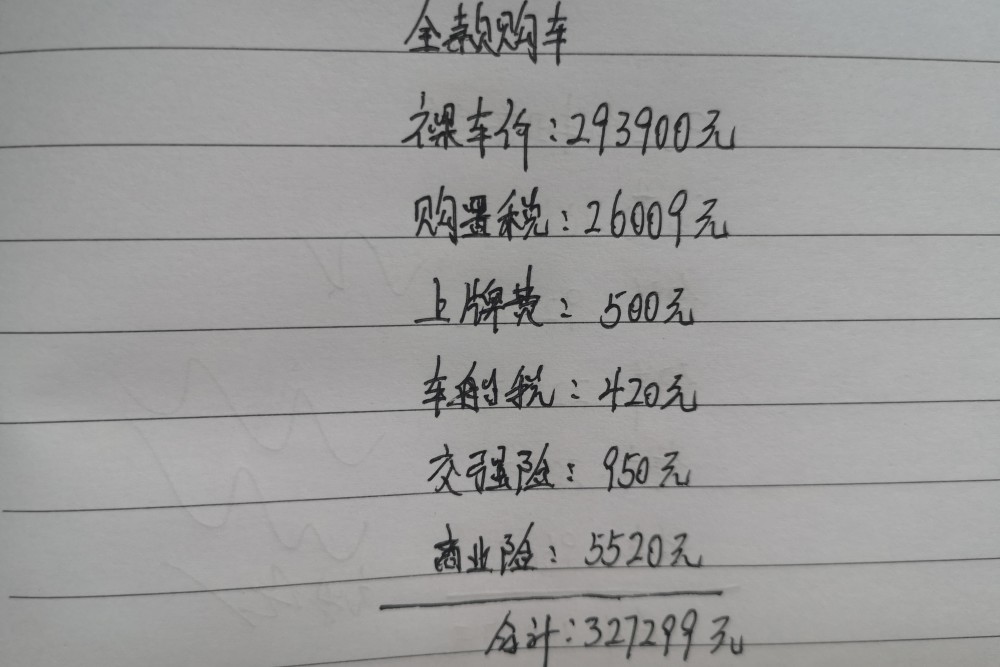 全款购车
裸车价:293900元
购置税:26009元
上牌费:500元
车船税:420元
交强险:950元
商业险:5520元
合计:327299元